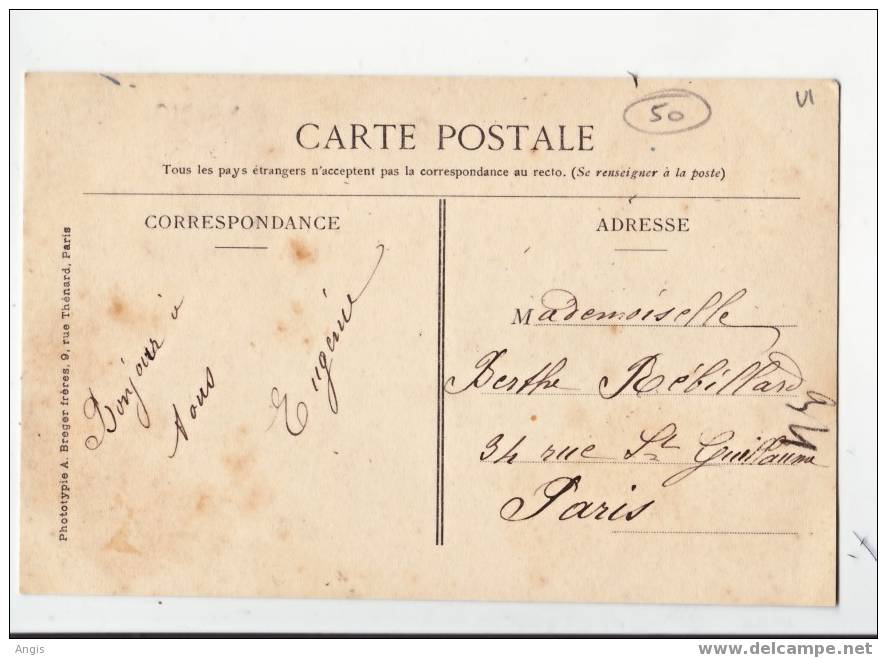 50
VI
CARTE POSTALE
Tous les pays étrangers n'acceptent pas la correspondance au recto. (Se renseigner à la poste)
CORRESPONDANCE
ADRESSE
Phototypie A. Breger frères, 9, rue Thénard, Paris
Bonjour à
tous
Eugénie
Mademoiselle
Berthe Rébillard
34 rue St Guillaume
Paris
Angis
www.delcampe.net